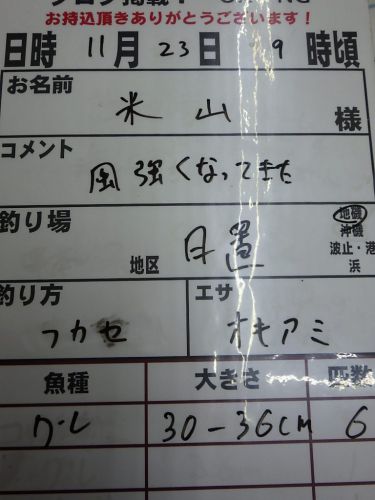 お持込頂きありがとうございます！
日時 11月23日 9時頃
お名前 米山 様
コメント
風強くなってきた
釣り場 地区 日置 地磯
沖磯
波止・港
浜
釣り方 エサ
フカセ オキアミ
魚種 大きさ 匹数
グレ 30-36cm 6